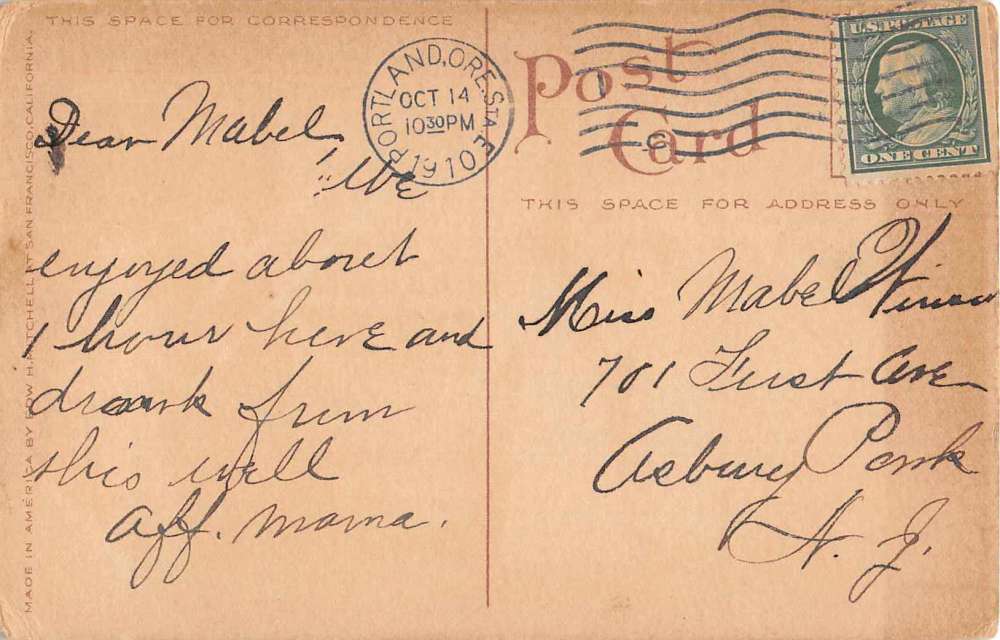 THIS SPACE FOR CORRESPONDENCE
Dear Mabel,
We
enjoyed about
1 hour here and
drank from
this well
Aff. Mama.
MADE IN AMERICA BY EDW H. MITCHELL AT SAN FRANCISCO, CALIFORNIA.
PORTLAND, ORE. STA. E
OCT 14
10 30 PM
1910
Post
Card
U.S. POSTAGE
ONE CENT
THIS SPACE FOR ADDRESS ONLY
Miss Mabel
701 First Ave
Asbury Park
N. J.